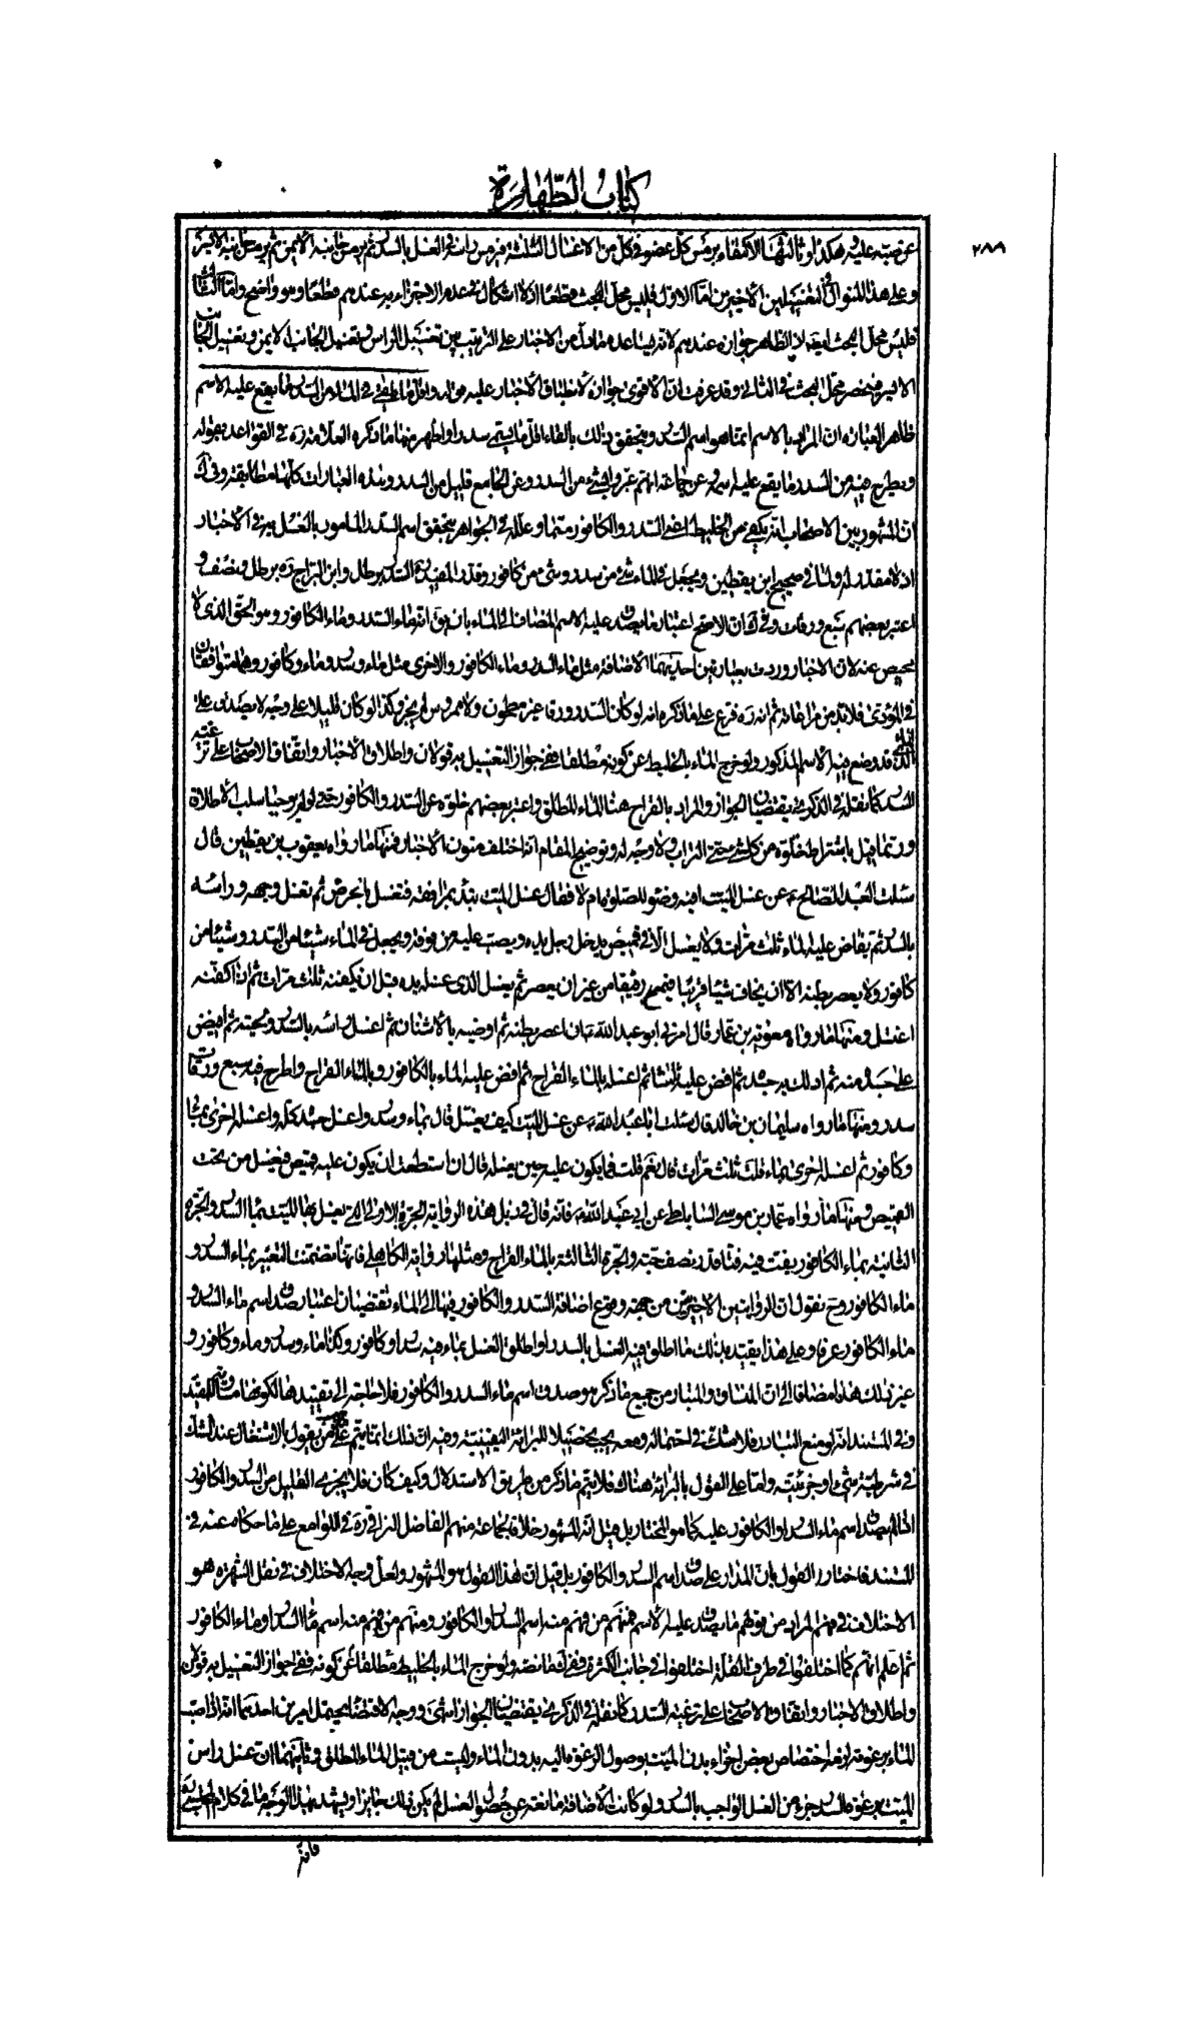 كتاب الطهارة
٢٨٩
عن جنبه عليه وهكذا وثالثها الاكتفاء برمس كل عضو في كل من الاغسال الثلثة فيرمس راسه في الغسل بالسدر ثم يرمس جانبه الأيمن ثم يرمس جانبه الأيسر
وعلى هذا المنوال في الغسلين الأخيرين اما الاول فليس محل البحث قطعا اذ لا اشكال في عدم الاجتزاء به عندهم قطعا وهو واضح واما الثالث
فليس محل البحث ايضا لان الظاهر جوازه عندهم لانه يساعد ما دل من الاخبار على الترتيب بين تغسيل الراس وتغسيل الجانب الايمن وتغسيل الجانب
الايسر فينحصر محل البحث في الثاني وقد عرفت ان الأقوى جوازه لانطباق الأخبار عليه قوله واقل ما يلقى في الماء من السدر ما يقع عليه الاسم
ظاهر العبارة ان المراد بالاسم انما هو اسم السدر ويتحقق ذلك بالقاء اقل ما يسمى سدرا واظهر منها ما ذكره العلامة ره في القواعد بقوله
ويطرح فيه من السدر ما يقع عليه اسمه وعن جماعة انهم عبروا بشيء من السدر وعن الجامع قليل من السدر وهذه العبارات كلها مطابقة وفي ك
ان المشهور بين الاصحاب انه يكفي من الخليط اعنى السدر والكافور مسماه وعلله في الجواهر بتحقق اسم السدر المامور بالغسل به في الأخبار
اذ لا مقدر له ولما في صحيح ابن يقطين ويجعل في الماء شئ من سدر وشئ من كافور وقدر المفيد ره السدر برطل وابن البراج ره برطل ونصف و
اعتبر بعضهم سبع ورقات وفي ك ان الاصح اعتبار ما يصدق عليه الاسم المضاف الى الماء بان يق انه ماء السدر وماء الكافور وهو الحق الذي لا
محيص عنه لان الاخبار وردت بعبارتين احديهما الاضافة مثل ماء السدر وماء الكافور والاخرى مثل ماء وسدر وماء وكافور وهما متوافقان
في المؤدى فلا بد من مراعاته ثم انه ره فرع على ما ذكره انه لو كان السدر ورقا غير مطحون ولا ممروس لم يجز وكذا لو كان قليلا على وجه لا يصدق على
الماء الذي قد وضع فيه الأسم المذكور ولو خرج الماء بالخليط عن كونه مطلقا ففي جواز التغسيل به قولان واطلاق الأخبار واتفاق الاصحاب على ترغية
السدر كما نقله في الذكرى يقتضيان الجواز والمراد بالقراح هنا الماء المطلق واعتبر بعضهم خلوه عن السدر والكافور حتى لو لم يوجبا سلب الأطلاق
وربما قيل باشتراط خلوه من كل شئ حتى التراب ولا وجه له وتوضيح المقام انه اختلف متون الأخبار فمنها ما رواه يعقوب بن يقطين قال
سئلت العبد الصالح ع عن غسل الميت افيه وضوء للصلوة ام لا فقال غسل الميت يبدء بمرافقه فتغسل بالحرض ثم تغسل وجهه وراسه
بالسدر ثم يفاض عليه الماء ثلث مرات ولا يغسل الا في قميص يدخل رجل يده ويصب عليه من فوقه ويجعل في الماء شيئا من السدر وشيئا من
كافور ولا يعصر بطنه الا ان يخاف شيئا قريبا فيمسح رفيقا من غير ان يعصر ثم يغسل الذي غسله يده قبل ان يكفنه ثلث مرات ثم اذا كفنه
اغتسل ومنها ما رواه معوية بن عمار قال امرني ابو عبد الله ع ان اعصر بطنه ثم اوضيه بالاشنان ثم اغسل راسه بالسدر ولحيته ثم افيض
على جسده منه ثم ادلك به جسده ثم افض عليه ثلثا ثم اغسله بالماء القراح ثم افض عليه الماء بالكافور وبالماء القراح واطرح فيه سبع ورقات
سدر ومنها ما رواه سليمان بن خالد قال سئلت ابا عبد الله ع عن غسل الميت كيف يغسل قال بماء وسدر واغسل جسده كله واغسله اخرى بماء
وكافور ثم اغسله اخرى بماء قلت ثلث مرات قال نعم قلت فما يكون عليه حين يغسله قال ان استطعت ان يكون عليه قميص فيغسل من تحت
القميص ومنها ما رواه عمار بن موسى الساباطي عن ابي عبد الله ع فانه قال في ذيل هذه الرواية الجرة الاولى التي يغسل بها الميت بماء السدر والجرة
الثانية بماء الكافور يفت فيه فتا قدر نصف حبة والجرة الثالثة بالماء القراح ومثلها رواية الكاهلي فانها تضمنت التعبير بماء السدر و
ماء الكافور وح نقول ان الروايتين الاخيرتين من جهة وقوع اضافة السدر والكافور فيها الى الماء تقتضيان اعتبار صدق اسم ماء السدر و
ماء الكافور عرفا وعلى هذا يقيد بذلك ما اطلق فيه الغسل بالسدر او اطلق الغسل بماء فيه سدر او كافور وكذا ماء وسدر وماء وكافور و
غير ذلك هذا مضافا الى ان المنساق والمتبادر من جميع ما ذكر هو صدق اسم ماء السدر والكافور فلا حاجة الى تقييدها لكونها مساوقة للمقيد
وفي المستند انه لو منع التبادر فلا شك في احتماله ومعه يجب تحصيلا للبرائة اليقينية وفيه ان ذلك انما يتم على مذهب من يقول بالاشتغال عند الشك
في شرطية شئ او جزئيته واما على القول بالبرائة هناك فلا يتم ما ذكر من طريق الاستدلال وكيف كان فلا يجزي القليل من السدر والكافور
اذا لم يصدق اسم ماء السدر او الكافور عليه كما هو المختار بل قيل انه المشهور خلافا لجماعة منهم الفاضل النراقي ره في اللوامع على ما حكاه عنه في
المستند فاختار القول بان المدار على صدق اسم السدر والكافور بل قيل ان هذا القول هو المشهور ولعل وجه الاختلاف في نقل الشهرة هو
الاختلاف في فهم المراد من قولهم ما يصدق عليه الأسم فمنهم من فهم منه اسم السدر او الكافور ومنهم من فهم منه اسم ماء السدر او ماء الكافور
ثم اعلم انهم كما اختلفوا في طرف القلة اختلفوا في جانب الكثرة ففي ك ما نصه ولو خرج الماء بالخليط عن كونه مطلقا ففي جواز التغسيل به قولان
واطلاق الاخبار واتفاق الاصحاب على ترغية السدر كما نقله في الذكرى يقتضيان الجواز انتهى ووجه الاقتضاء يحتمل امرين احدهما انه اذا صب
الماء برغوته لزم اختصاص بعض اجزاء بدن الميت بوصول الرغوة اليه بدون الماء وليست من قبيل الماء المطلق وثانيهما ان غسل راس
الميت برغوة السدر جزء من الغسل الواجب بالسدر ولو كانت الأضافة مانعة عن حصول الغسل لم يكن ذلك جايزا ويشهد بهذا الوجه ما في كلام المجلسي ره
فانه